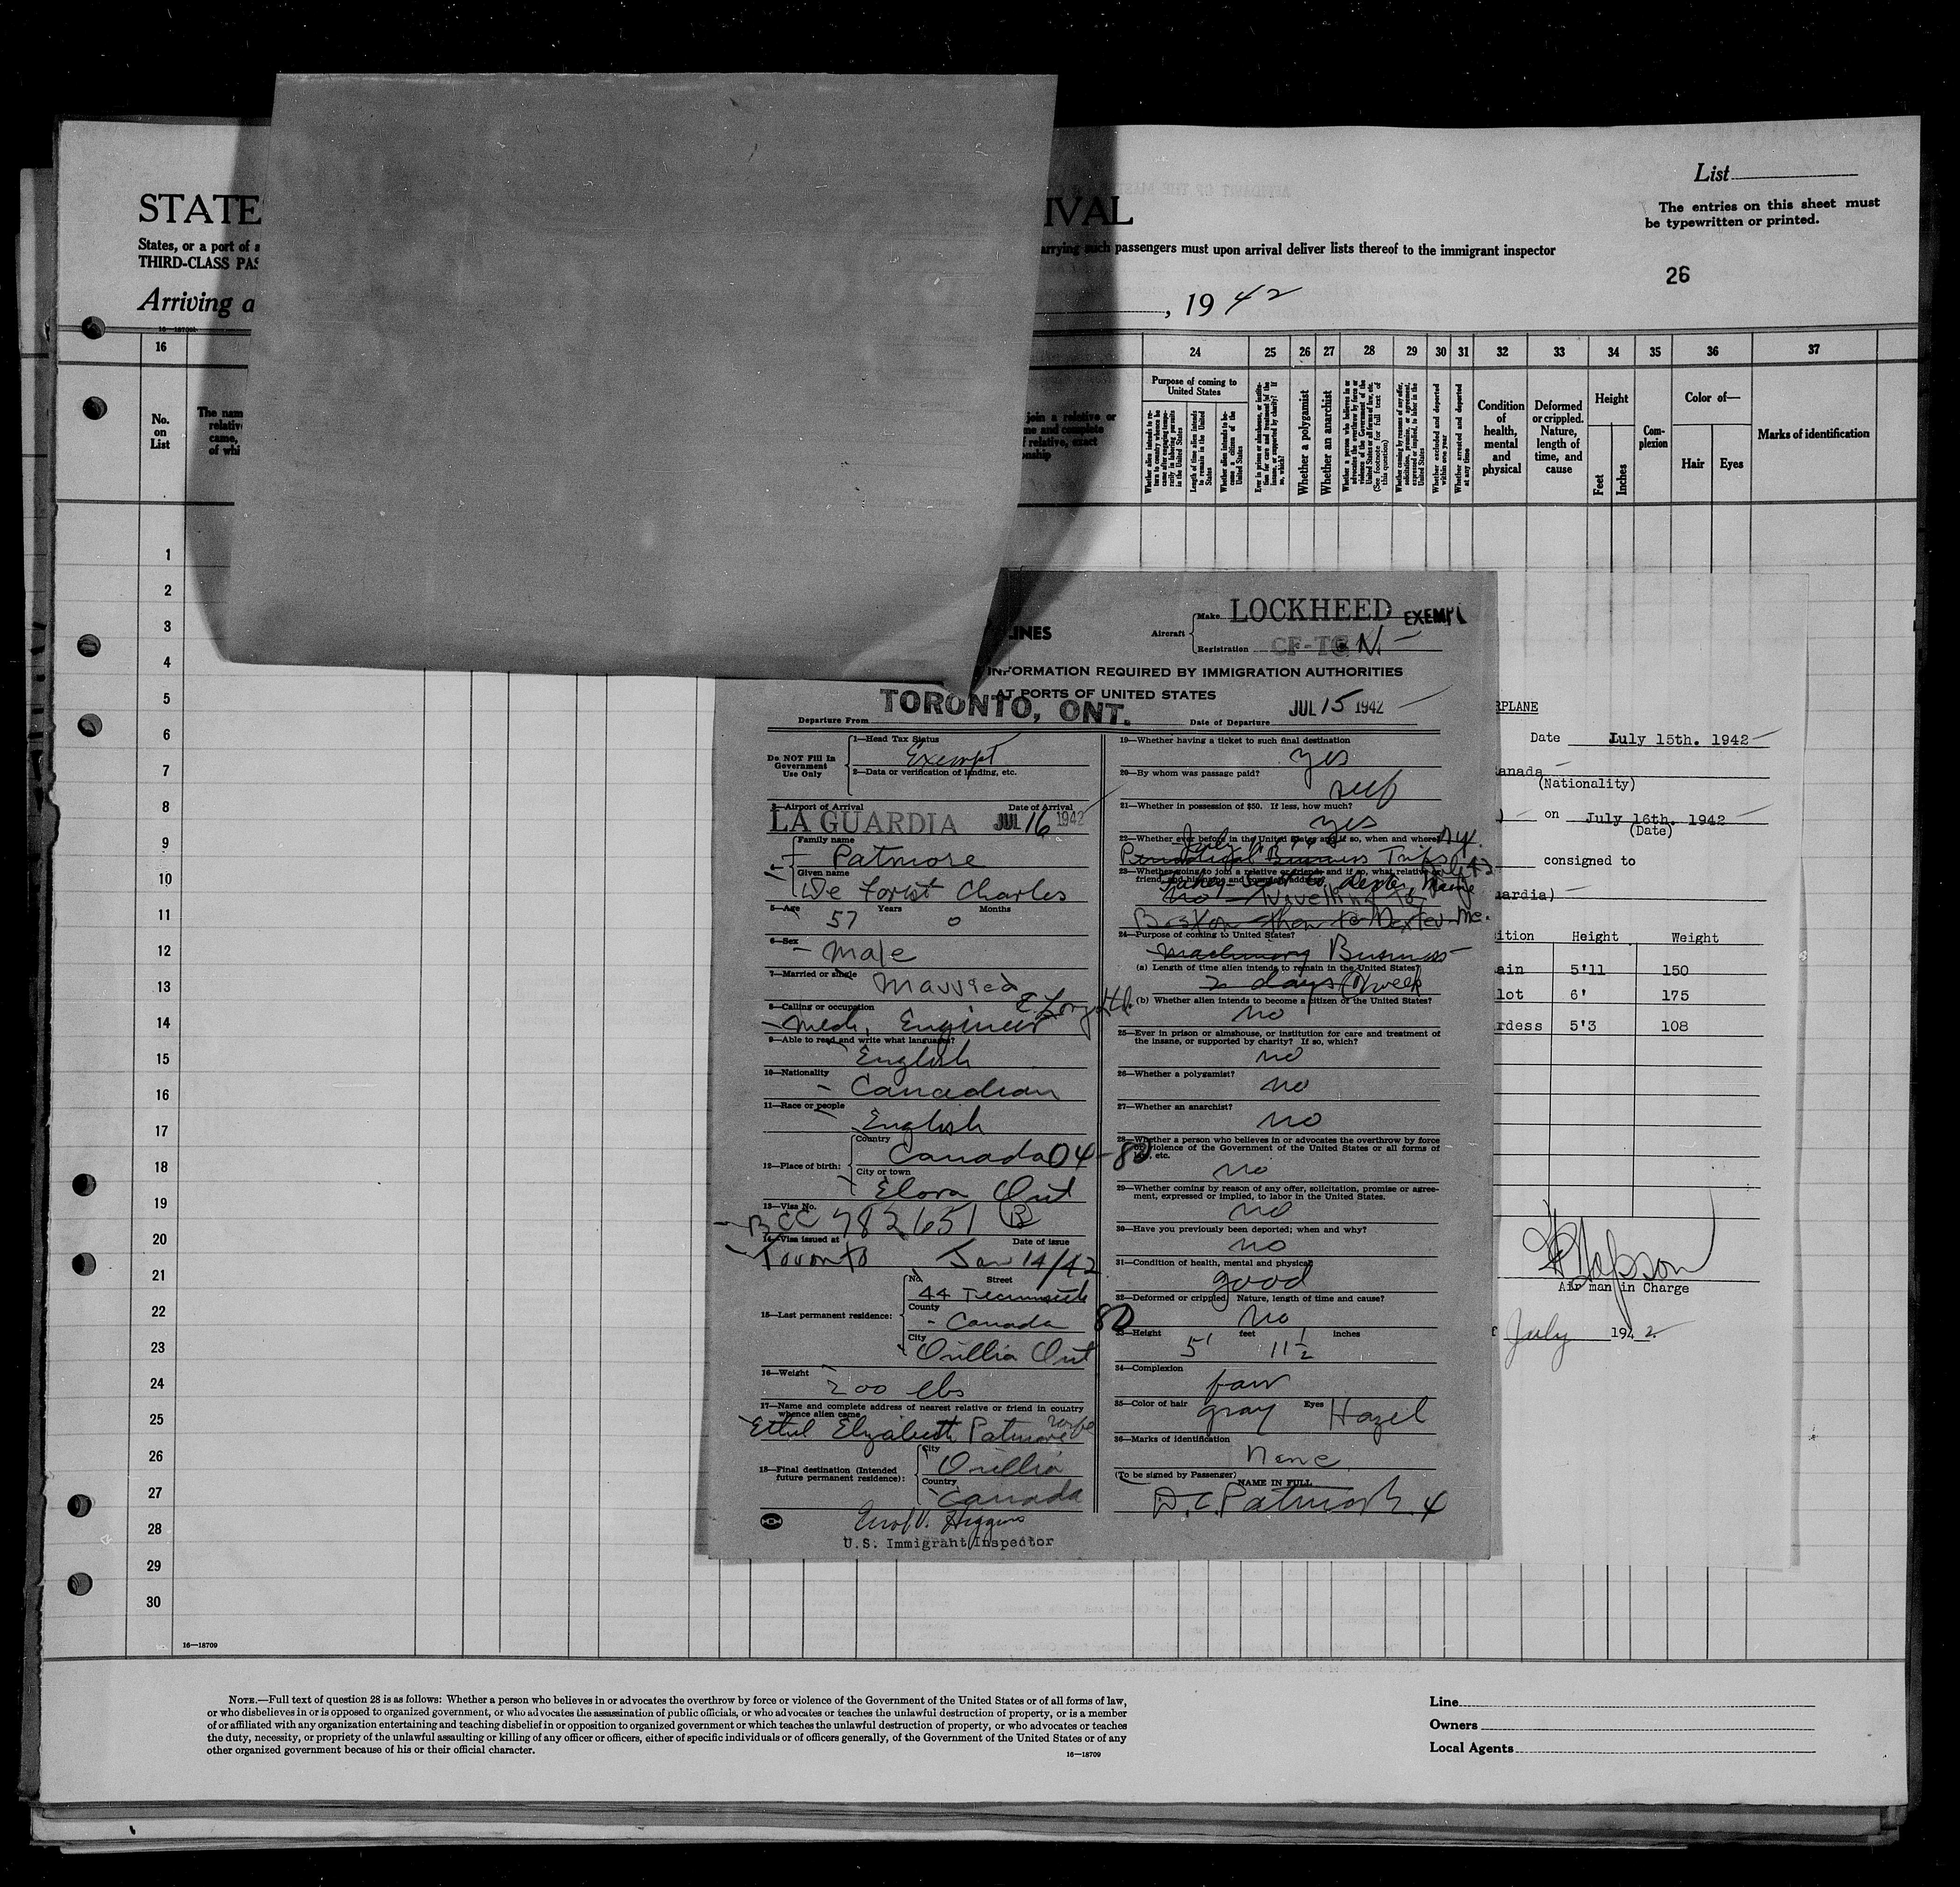 List
The entries on this sheet must
be typewritten or printed.
STATE
IVAL
States, or a port of
arrying such passengers must upon arrival deliver lists thereof to the immigrant inspector
THIRD-CLASS PAS
26
Arriving a
, 19 42
16—18709
16 24 25 26 27 28 29 30 31 32 33 34 35 36 37
No.
on
List
The nam
relativ
came,
of whi
join a relative or
me and complete
f relative, exact
onship
Purpose of coming to
United States
Whether a polygamist
Whether an anarchist
Condition
of
health,
mental
and
physical
Deformed
or crippled.
Nature,
length of
time, and
cause
Height
Feet
Inches
Com-
plexion
Color of—
Hair
Eyes
Marks of identification
1
2
3
4
5
6
7
8
9
10
11
12
13
14
15
16
17
18
19
20
21
22
23
24
25
26
27
28
29
30
16—18709
LINES
Aircraft
Make LOCKHEED EXEMPT
Registration CF-TC N
INFORMATION REQUIRED BY IMMIGRATION AUTHORITIES
AT PORTS OF UNITED STATES
Departure From TORONTO, ONT.
Date of Departure JUL 15 1942
Do NOT Fill In
Government
Use Only
1—Head Tax Status
Exempt
2—Data or verification of landing, etc.
3—Airport of Arrival Date of Arrival
LA GUARDIA JUL 16 1942
Family name
Patmore
Given name
De Forest Charles
5—Age 57 Years 0 Months
6—Sex
Male
7—Married or single
Married
8—Calling or occupation
Mech. Engineer
9—Able to read and write what languages?
English
10—Nationality
Canadian
11—Race or people
English
12—Place of birth:
Country
Canada 04-80
City or town
Elora Ont
13—Visa No.
BCC 782651 B
14—Visa issued at Date of issue
Toronto Jan 14/42
15—Last permanent residence:
No. Street
44 Tecumseth
County
Canada 80
City
Orillia Ont
16—Weight
200 lbs
17—Name and complete address of nearest relative or friend in country
whence alien came
Ethel Elizabeth Patmore wife
18—Final destination (Intended
future permanent residence):
City
Orillia
Country
Canada
Higgins
U.S. Immigrant Inspector
19—Whether having a ticket to such final destination
yes
20—By whom was passage paid?
self
21—Whether in possession of $50. If less, how much?
yes
22—Whether ever before in the United States and if so, when and where?
Business Trips
23—Whether going to join a relative or friend; and if so, what relative or
friend, and his name and complete address
no Travelling to
Boston then to Dexter Me.
24—Purpose of coming to United States?
Machinery Business
(a) Length of time alien intends to remain in the United States?
2 days 1 week
(b) Whether alien intends to become a citizen of the United States?
no
25—Ever in prison or almshouse, or institution for care and treatment of
the insane, or supported by charity? If so, which?
no
26—Whether a polygamist?
no
27—Whether an anarchist?
no
28—Whether a person who believes in or advocates the overthrow by force
or violence of the Government of the United States or all forms of
law, etc.
no
29—Whether coming by reason of any offer, solicitation, promise or agree-
ment, expressed or implied, to labor in the United States.
no
30—Have you previously been deported; when and why?
no
31—Condition of health, mental and physical
good
32—Deformed or crippled. Nature, length of time and cause?
No
33—Height 5' feet 11 1/2 inches
34—Complexion
fair
35—Color of hair gray Eyes Hazel
36—Marks of identification
None
(To be signed by Passenger)
NAME IN FULL
D.C. Patmore 4
RPLANE
Date July 15th. 1942
anada
(Nationality)
on July 16th. 1942
(Date)
consigned to
uardia)
ition Height Weight
ain 5'11 150
lot 6' 175
rdess 5'3 108
Air man in Charge
July 1942
NOTE.—Full text of question 28 is as follows: Whether a person who believes in or advocates the overthrow by force or violence of the Government of the United States or of all forms of law,
or who disbelieves in or is opposed to organized government, or who advocates the assassination of public officials, or who advocates or teaches the unlawful destruction of property, or is a member
of or affiliated with any organization entertaining and teaching disbelief in or opposition to organized government or which teaches the unlawful destruction of property, or who advocates or teaches
the duty, necessity, or propriety of the unlawful assaulting or killing of any officer or officers, either of specific individuals or of officers generally, of the Government of the United States or of any
other organized government because of his or their official character.
16—18709
Line
Owners
Local Agents